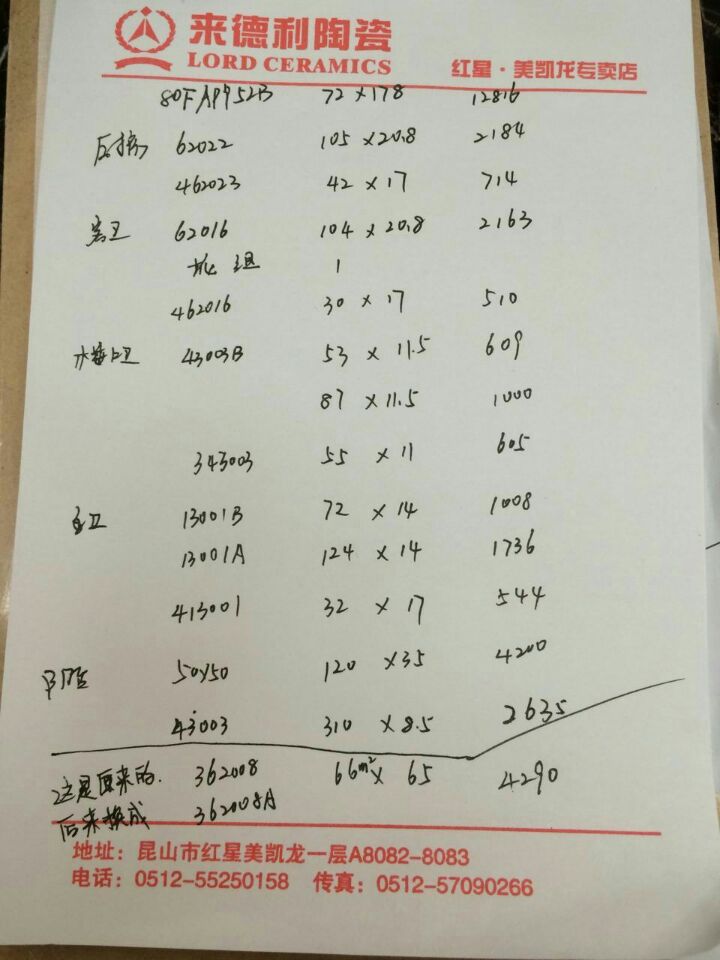 来德利陶瓷
LORD CERAMICS
红星·美凯龙专卖店
80FAP952B 72×178 12816
62022 105×20.8 2184
462023 42×17 714
客卫 62016 104×20.8 2163
1
462016 30×17 510
43003B 53×11.5 609
87×11.5 1000
343003 55×11 605
主卫 13001B 72×14 1008
13001A 124×14 1736
413001 32×17 544
50×50 120×35 4200
43003 310×8.5 2635
这是原来的. 362008 66m²×65 4290
后来换成 362008A
地址：昆山市红星美凯龙一层A8082-8083
电话：0512-55250158 传真：0512-57090266